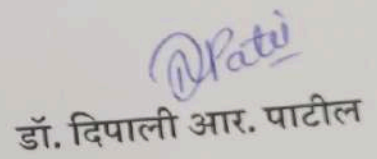 DRPatil
डॉ. दिपाली आर. पाटील